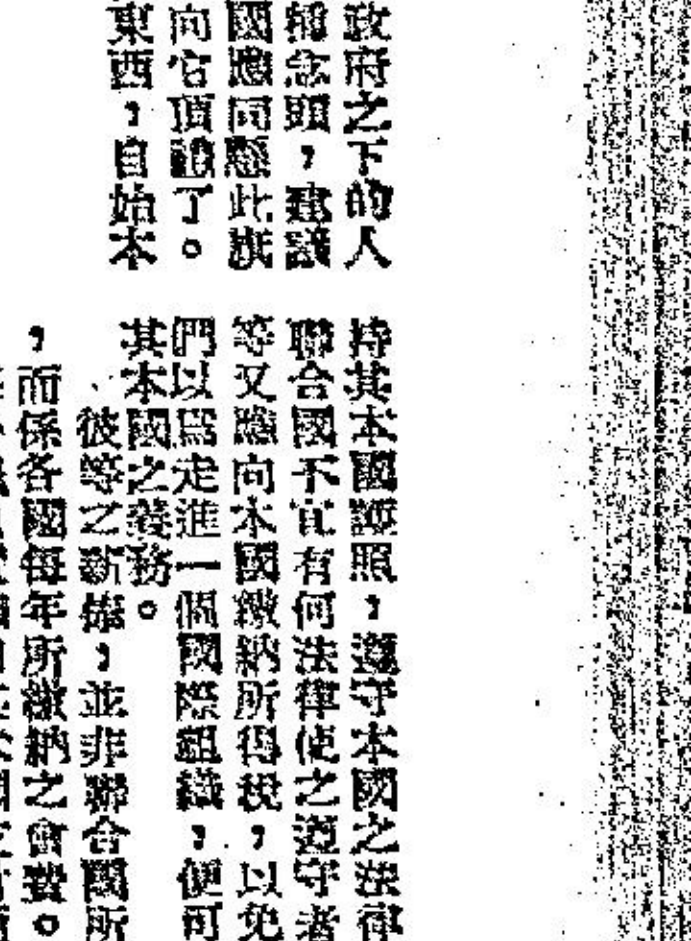 政府之下的人
種念頭，建議
國應同懸此旗
向它頂禮了。
東西，自始本
持其本國護照，遵守本國之法律
聯合國不宜有何法律使之遵守者
等又應向本國繳納所得稅，以免
們以爲走進一個國際組織，便可
其本國之義務。
彼等之新俸，並非聯合國所
，而係各國每年所繳納之會費。